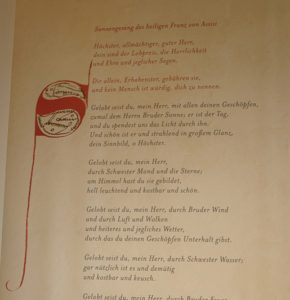 Sonnengesang des heiligen Franz von Assisi
Höchster, allmächtiger, guter Herr,
dein sind der Lobpreis, die Herrlichkeit
und Ehre und jeglicher Segen.
Dir allein, Erhabenster, gebühren sie,
und kein Mensch ist würdig, dich zu nennen.
Gelobt seist du, mein Herr, mit allen deinen Geschöpfen,
zumal dem Herrn Bruder Sonne; er ist der Tag,
und du spendest uns das Licht durch ihn.
Und schön ist er und strahlend in großem Glanz,
dein Sinnbild, o Höchster.
Gelobt seist du, mein Herr,
durch Schwester Mond und die Sterne;
am Himmel hast du sie gebildet,
hell leuchtend und kostbar und schön.
Gelobt seist du, mein Herr, durch Bruder Wind
und durch Luft und Wolken
und heiteres und jegliches Wetter,
durch das du deinen Geschöpfen Unterhalt gibst.
Gelobt seist du, mein Herr, durch Schwester Wasser;
gar nützlich ist es und demütig
und kostbar und keusch.
Gelobt seist du, mein Herr, durch Bruder